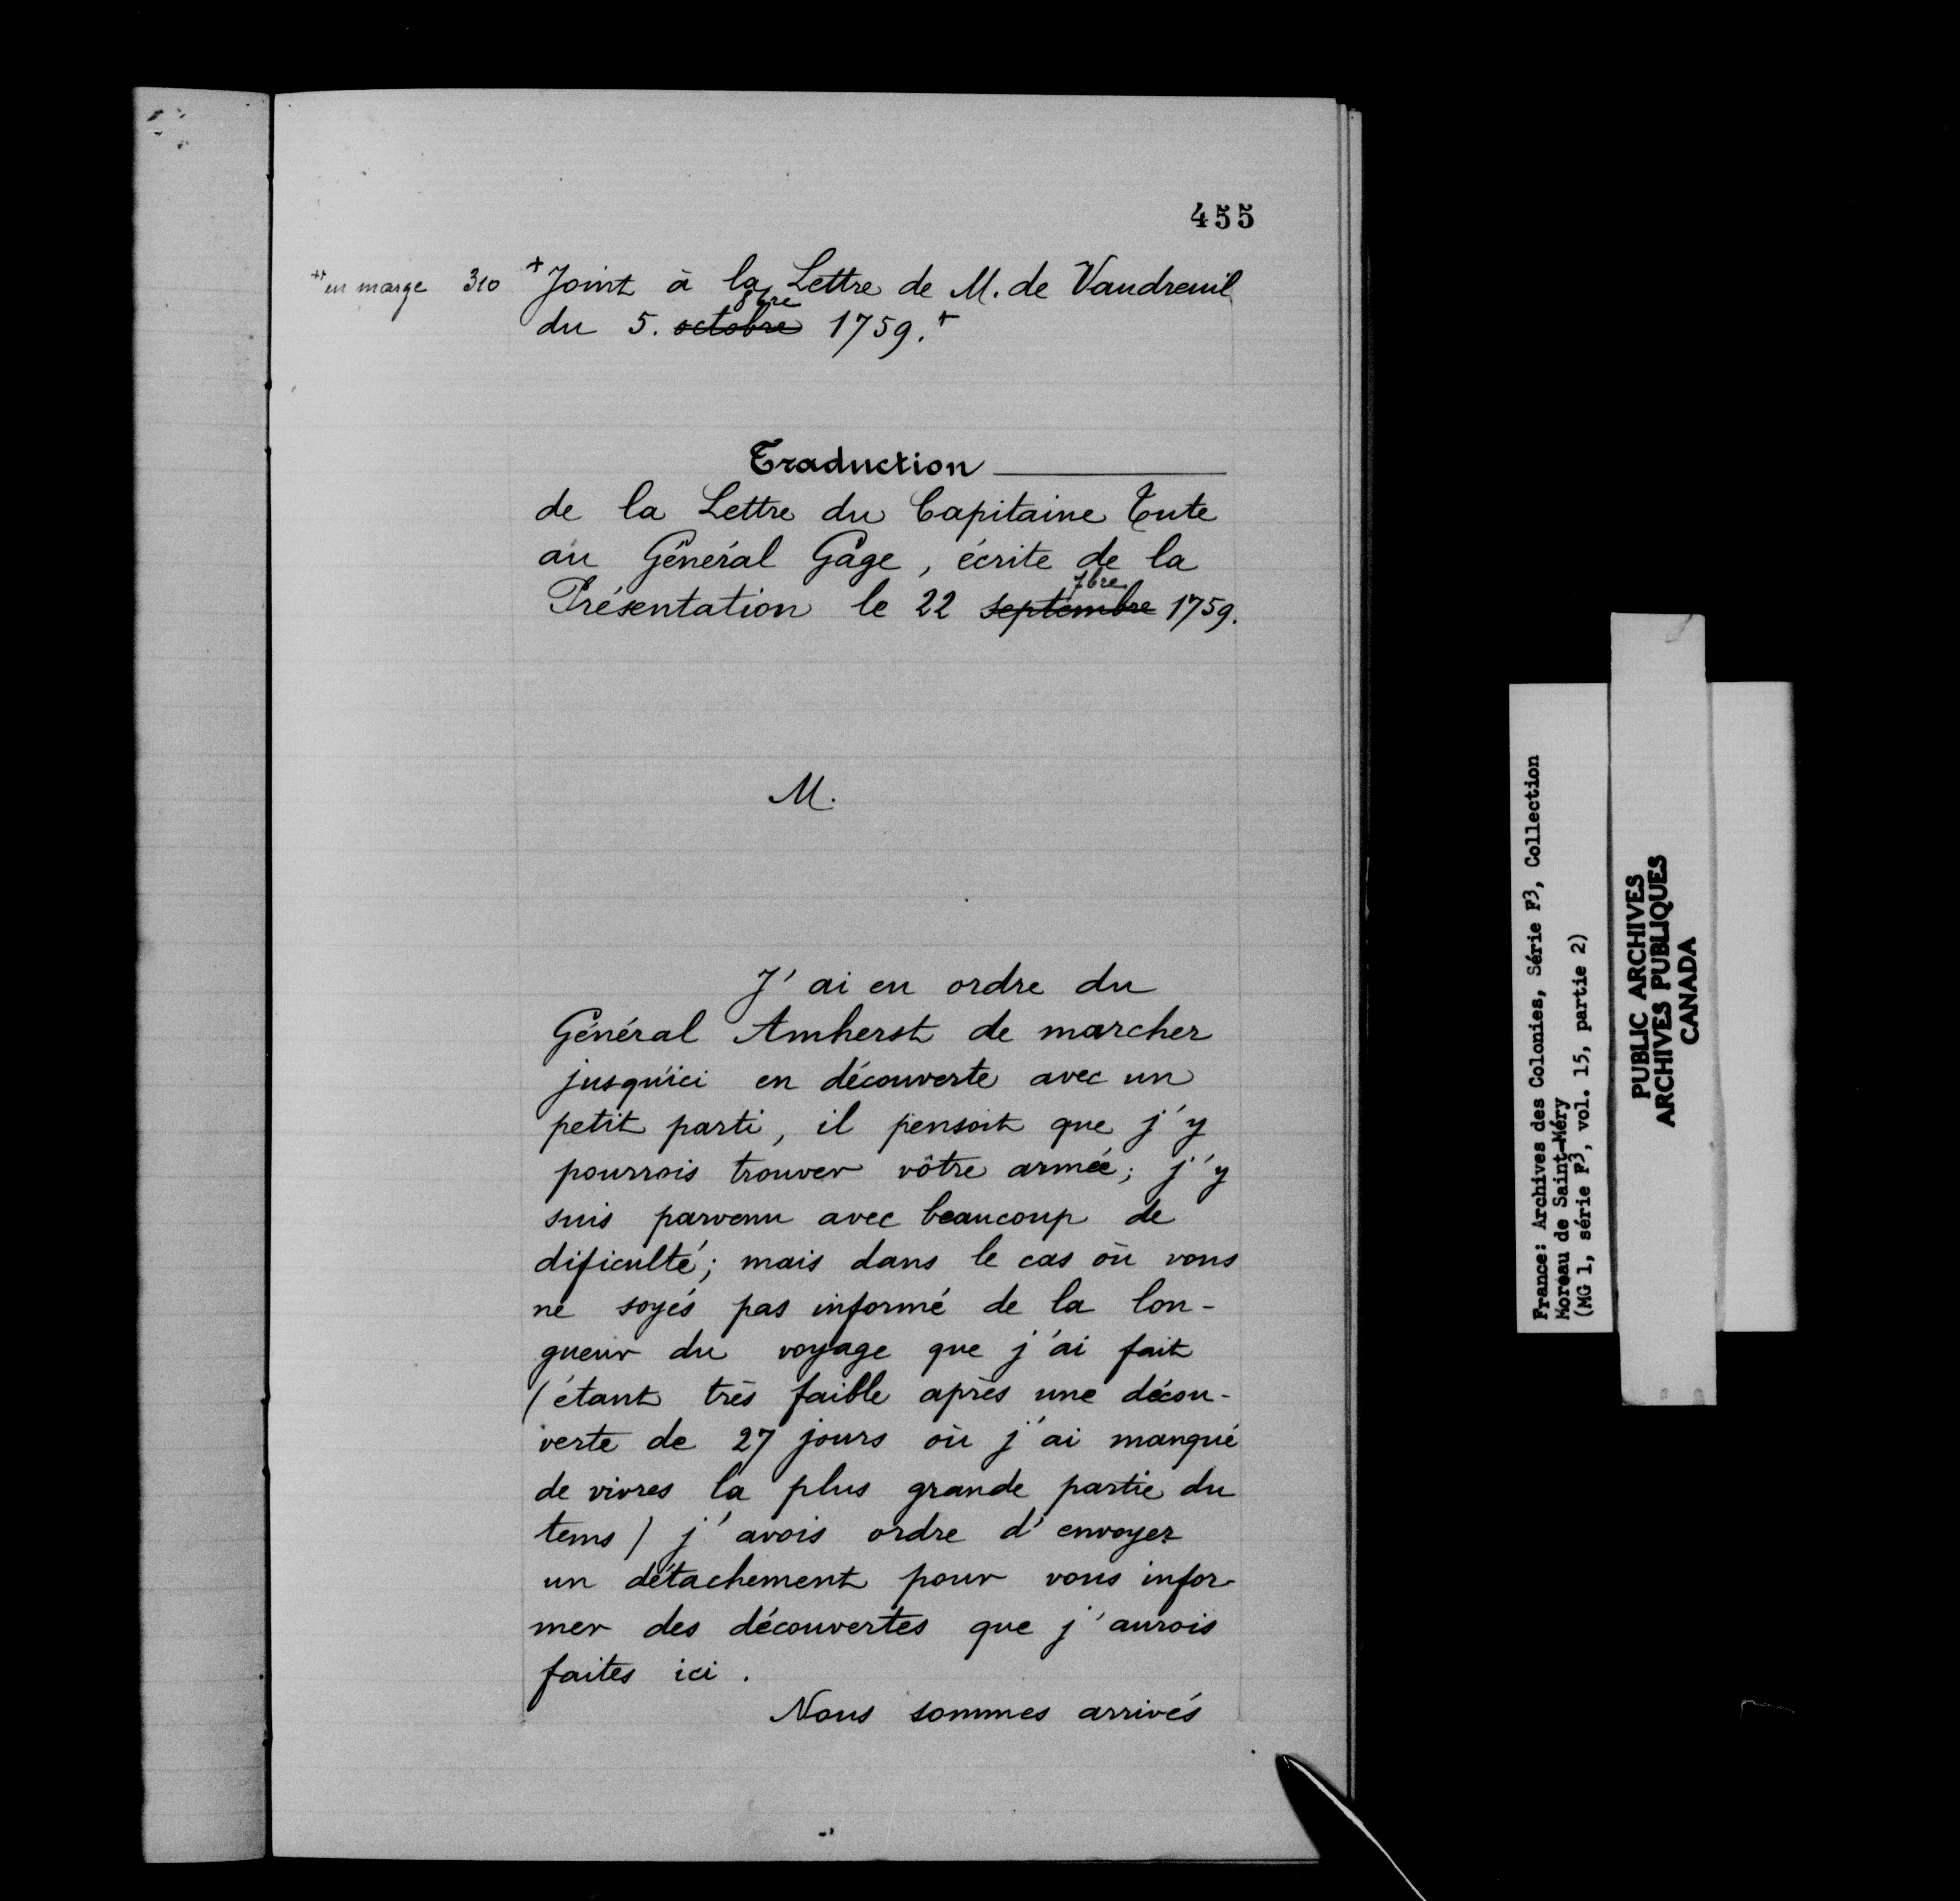 455
++ en marge 310 + Joint à la Lettre de M. de Vaudreuil
8bre
du 5. octobre 1759. +
Traduction
de la Lettre du Capitaine Tute
au Général Gage, écrite de la
7bre
Présentation le 22 septembre 1759.
M.
J'ai eu ordre du
Général Amherst de marcher
jusqu'ici en découverte avec un
petit parti, il pensoit que j'y
pourrois trouver vôtre armée; j'y
suis parvenu avec beaucoup de
dificulté; mais dans le cas où vous
ne soyés pas informé de la lon-
gueur du voyage que j'ai fait
(étant très faible après une décou-
verte de 27 jours où j'ai manqué
de vivres la plus grande partie du
tems) j'avois ordre d'envoyer
un détachement pour vous infor-
mer des découvertes que j'aurois
faites ici.
Nous sommes arrivés
France: Archives des Colonies, Série F3, Collection
Moreau de Saint-Méry
(MG 1, série F3, vol. 15, partie 2)
PUBLIC ARCHIVES
ARCHIVES PUBLIQUES
CANADA